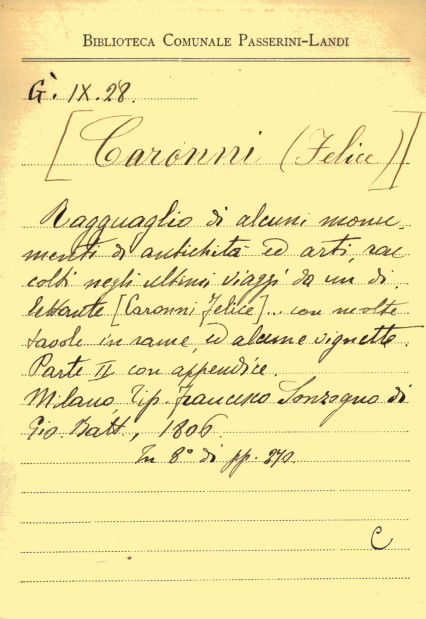 BIBLIOTECA COMUNALE PASSERINI-LANDI
G. IX. 28.
[Caronni (Felice)]
Ragguaglio di alcuni monu-
menti di antichità ed arti, rac
colti negli ultimi viaggi da un di
lettante [Caronni Felice]... con molte
tavole in rame, ed alcune vignette.
Parte II con appendice.
Milano Tip. Francesco Sonzogno di
Gio. Batt., 1806.
In 8° di pp. 270.
C